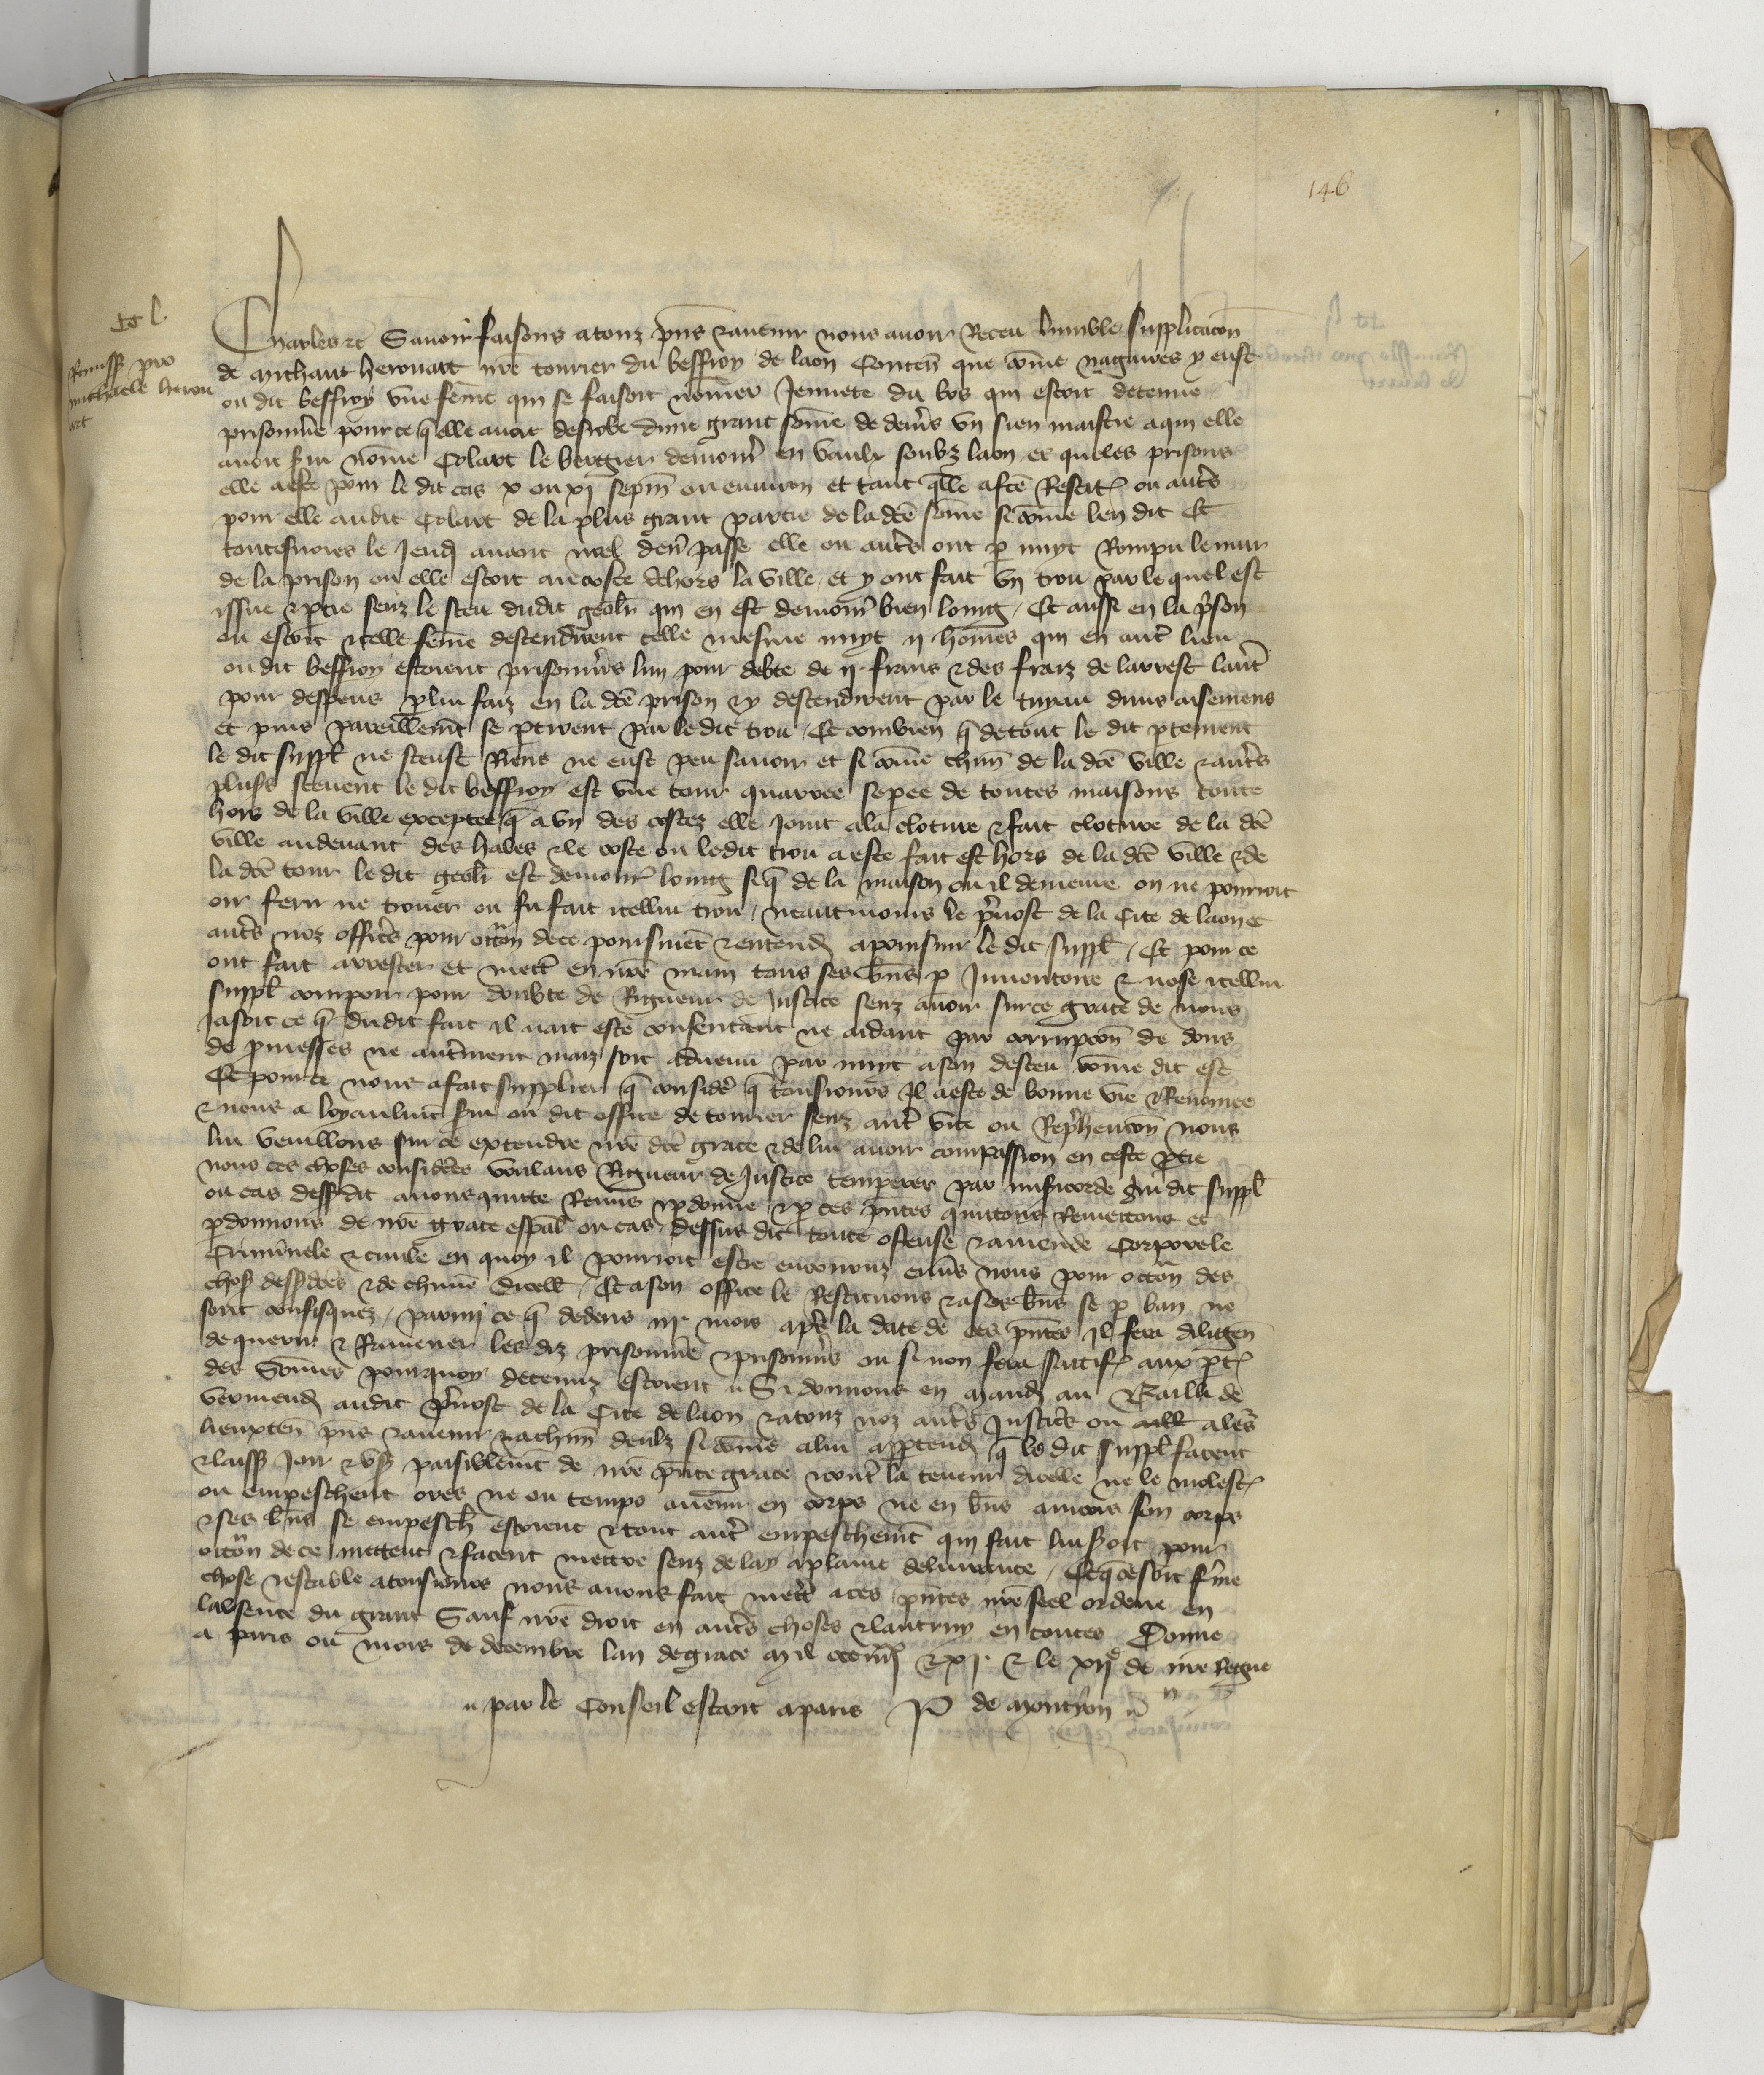 146
Remiss pro
michaele herou
art
Charles etc Savoir faisons a touz pns et avenir nous avoir Receu lumble supplicacon
de michaut herouart nre tourier du beffroy de laon Conten que come nagaires y eust
ou dit beffroy une feme qui se faisoit nomer Jennete du bos qui estoit detenue
prisonniere pour ce q elle avoit desrobe dune grant some de deniers un sien maistre a qui elle
avoit servi nome Colart le bergier demourt en vaulx soubz laon es queles prisons
elle a este pour le dit cas x ou xj sepm ou environ et tant quelle a fce Restit ou autres
pour elle audit Colart de la plus grant partie de la dce some si come len dit Et
toutesvoies le Jeudi avant noel derr passe elle ou autres ont p nuyt Rompu le mur
de la prison ou elle estoit au coste dehors la ville et y ont fait un trou par le quel est
issue et ptie senz le sceu dudit geolr qui en est demour bien loing / Et aussi en la pson
ou estoit icelle feme descendirent celle mesme nuyt ij homes qui en autre lieu
ou dit beffroy estoient prisonniers lun pour debte de ij frans et des fraiz de larrest lautre
pour despens p lui faiz en la dce prison et y descendirent par le tuyau duns aisemens
et puis pareillement se ptirent par le dit trou / Et combien q de tout le dit ptement
le dit suppl ne sceust Riens ne eust peu savoir et si come chun de la dce ville et autres
plusrs scevent le dit beffroy est une tour quarree sepee de toutes maisons toute
hors de la ville excepte q a un des costez elle joint a la cloture et fait cloture de la dce
ville au devant des hales et le coste ou ledit trou a este fait est hors de la dce ville et de
la dce tour le dit geolr est demour loing si q de la maison ou il demeure on ne pourroit
oir ferir ne trouer ou fu fait icellui trou / neantmoins le prevost de la Cite de laon et
autres noz officrs pour occon de ce poursuient et entend a poursuir le dit suppl / Et pour ce
ont fait arrester et mettre en nre main tous ses bns p Inventoire et nose icellui
suppl comparoir pour doubte de Rigueur de Justice senz avoir sur ce grace de nous
Jasoit ce q dudit fait il nait este consentant ne aidant par corrupcon de dons
de promesses ne autrement maiz soit advenu par nuyt a son desceu come dit est
Et pour ce nous a fait supplier q consider q tousjours il a este de bonne vie et Renomee
et nous a loyaulmt servi ou dit office de tourier senz autre vice ou Reprehencon nous
lui veuillons sur ce extendre nre dce grace et de lui avoir compassion en ceste ptie
nous ces choses considerees voulans Rigueur de Justice temperer par misericorde audit suppl
ou cas dessusdit avons quitte Remis et pdonne et p ces pntes quittons Remettons et
pdonnons de nre grace espal ou cas dessus dit toute offense et amende Corporele
Criminele et civile en quoy il pourroit estre encouruz envers nous pour occon des
choses dessdces et de chune dicell / Et a son office le Restituons et a ses bns se p ban ne
sont confisquez / parmi ce q dedens iij mois apres la date de ces pntes il fera diligen
de querir et Ramener les diz prisonniere et prisonniers ou si non fera satisf aux pt
des somes pourquoy detenuz estoient Si donnons en mand au Bailli de
vermend audit prevost de la Cite de laon et a touz noz autres Justicrs ou a leurs
lieuxten pns et avenir et a chun deulz si come a lui apptend q le dit suppl facent
et laiss Joir et user paisiblemt de nre pnte grace et contre la teneur dicelle ne le molest
ou empeschent ores ne ou temps avenir en corps ne en bns aincois son corps
et ses bns se empeschiez estoient et tout autre empeschemt qui fait lui soit pour
occon de ce mettent et facent mettre senz delay a plaine delivrance / Et q ce soit ferme
chose et estable a tousjours nous avons fait mettre a ces pntes nre seel ordene en
labsence du grant Sauf nre droit en autres choses et lautruy en toutes Donne
a paris ou mois de decembre lan de grace mil ccc iiijxx et xj et le xije de nre Regne
par le Conseil estant a paris P de montyon